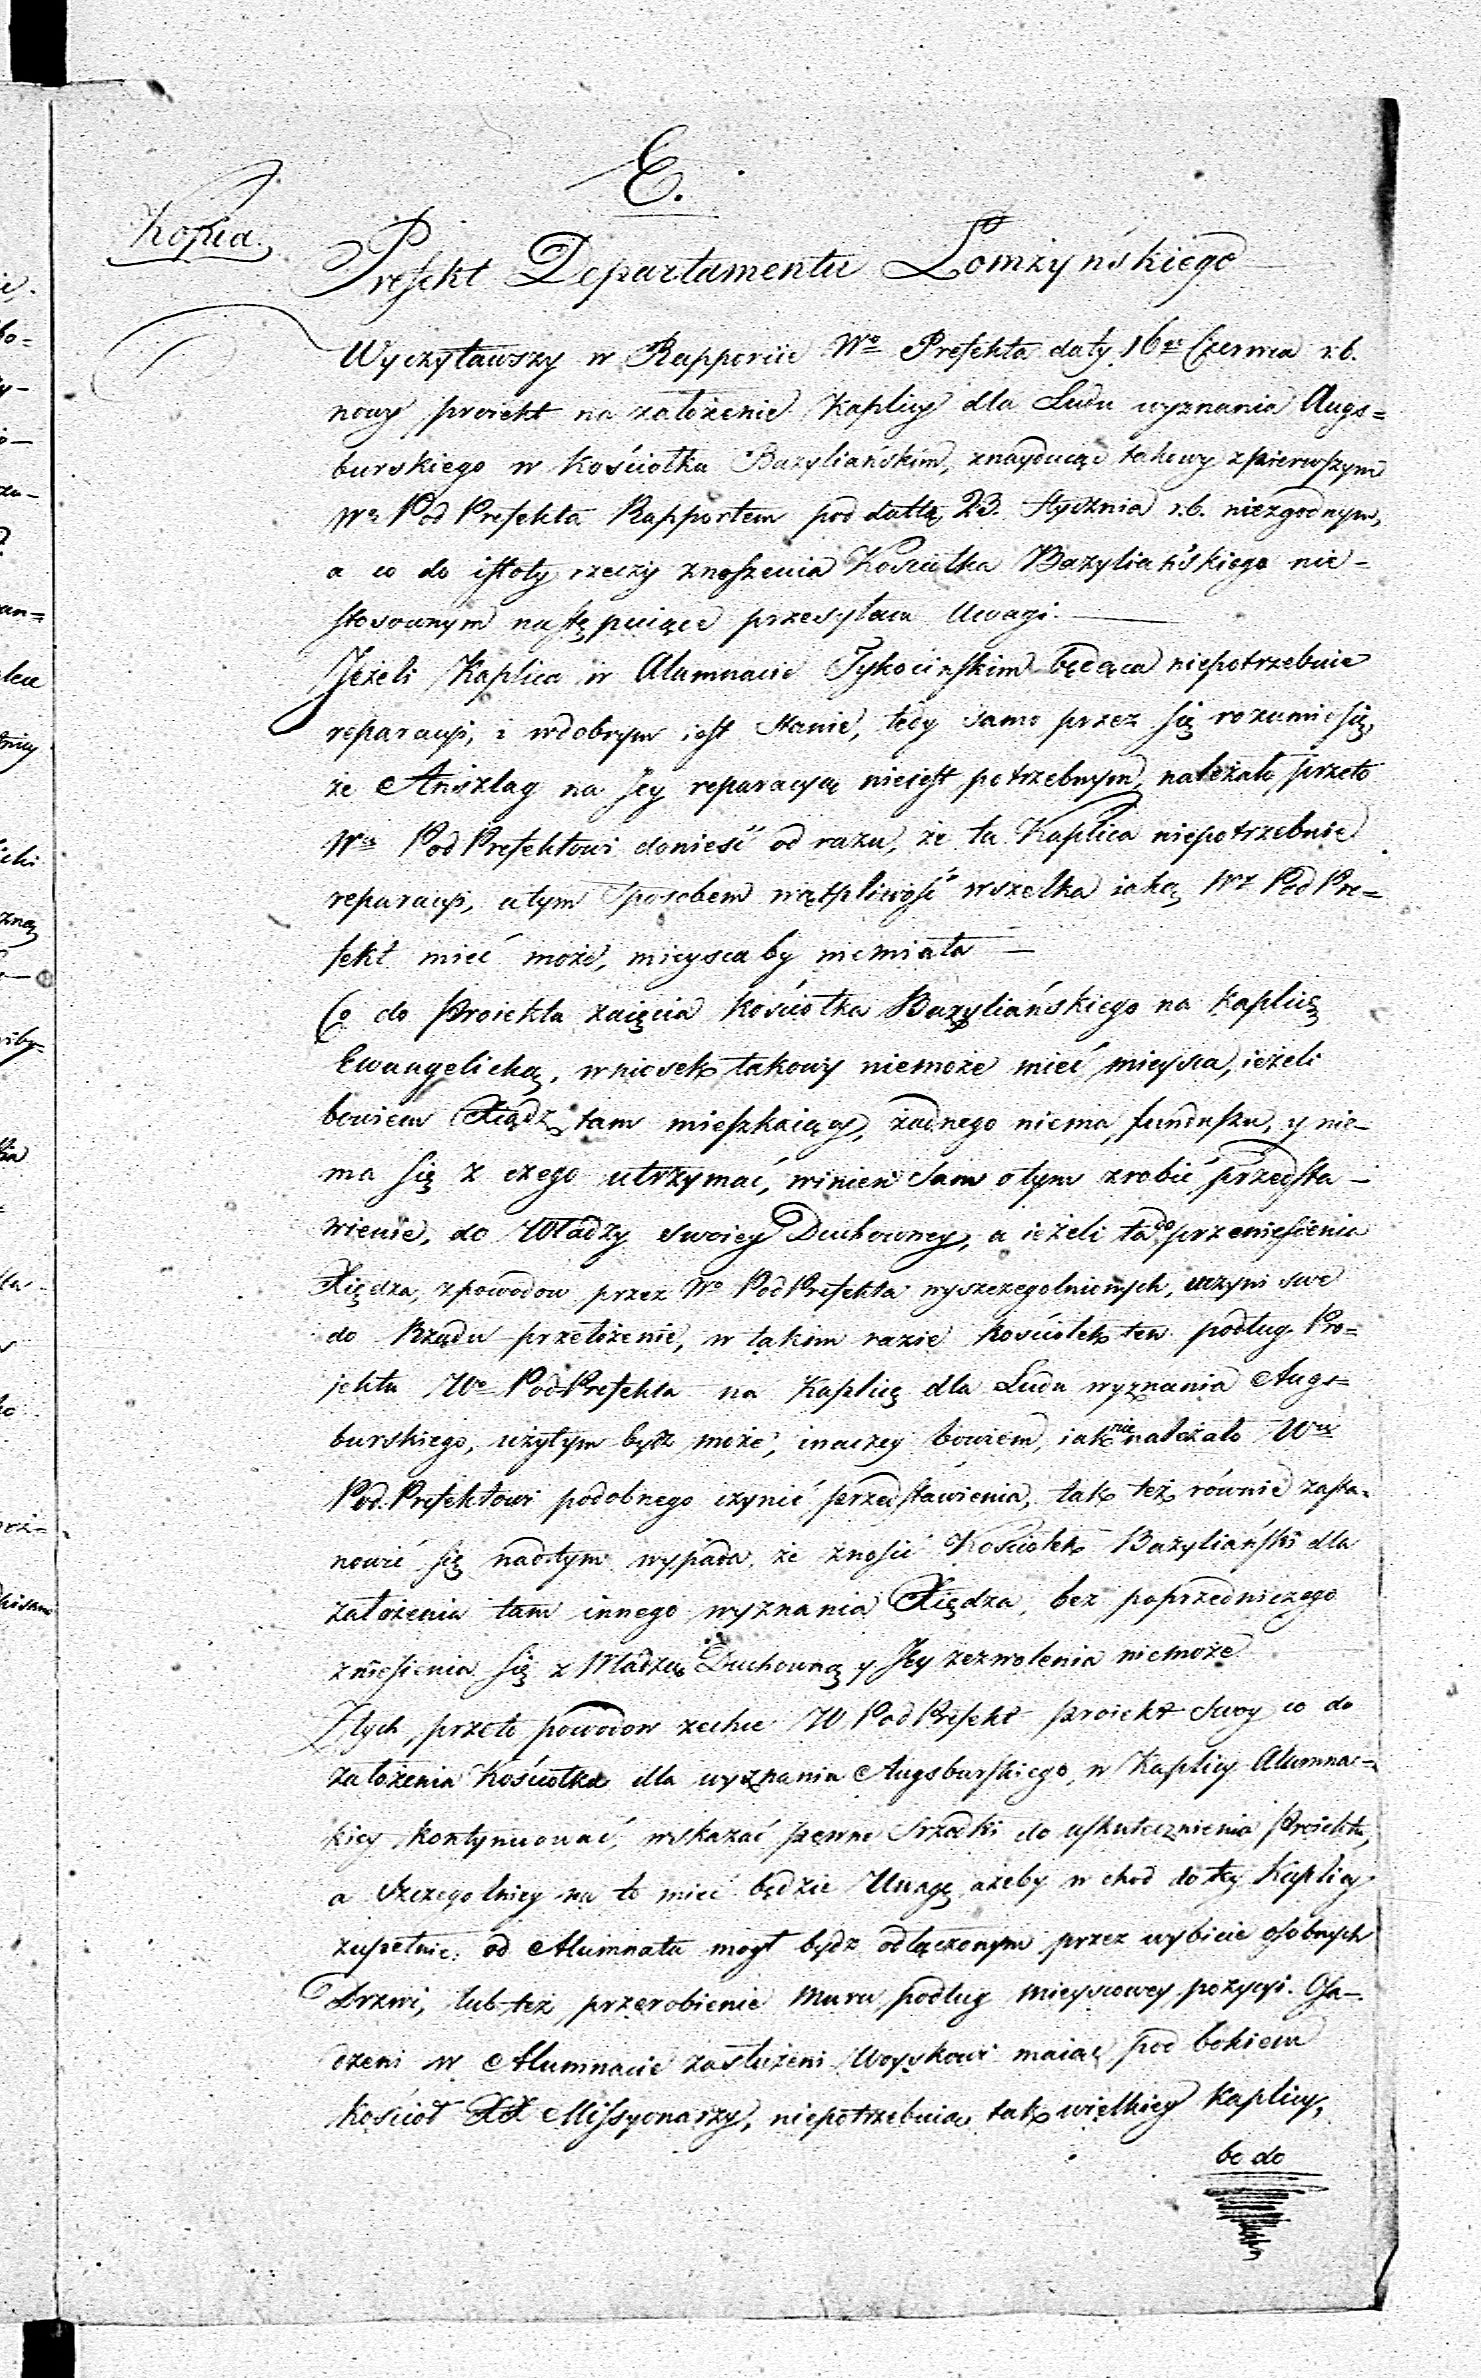 E.
Kopia.
Prefekt Departamentu Łomżyńskiego
Wyczytawszy w Rapporcie Wo Prefekta daty 16go Czerwca r.b.
nowy proiekt na założenie Kaplicy dla Ludu wyznania Augs=
burskiego w Kościołku Bazyliańskim, znayduiąc takowy z pierwszym
Wo PodPrefekta Rapportem pod dattą 23. Stycznia r.b. niezgodnym,
a co do istoty rzeczy znoszenia Kosciołka Bazyliańskiego nie-
stosownym następuiące przesyłam Uwagi.
Jeżeli Kaplica w Alumnacie Tykocinskim będąca niepotrzebuie
reparacyi, i w dobrym iest stanie, tedy samo przez się rozumie się,
że Anszlag na Jey reparacyą nieiest potrzebnym, należało przeto
Wu PodPrefektowi donieść od razu, że ta Kaplica niepotrzebuie
reparacyi, a tym sposobem wątpliwość wszelka iaką W. PodPre=
fekt mieć może, mieysca by niemiała —
Co do Proiektu zaięcia Kościołka Bazyliańskiego na Kaplicę
Ewangelicką, wniosek takowy niemoże mieć mieysca, ieżeli
bowiem Xiądz tam mieszkaiący, żadnego niema funduszu, y nie-
ma się z czego utrzymać, winien sam o tym zrobić przedsta-
wienie, do Władzy swoiey Duchowney, a ieżeli ta do przeniesienia
Xiędza, z powodow przez Wo PodPrefekta wyszczegolnionych, uczyni swe
do Rządu przełożenie, w takim razie kościołek ten podług Pro=
jektu Wo PodPrefekta na Kaplicę dla Ludu wyznania Augs=
burskiego, użytym bydz może, inaczey bowiem, iak nie należało Wu
Pod.Prefektowi podobnego czynić przedstawienia, tak też równie zasta-
nowić się nad tym wypada, że znosić Kościołek Bazyliański dla
założenia tam innego wyznania Xiędza, bez poprzedniczego
zniesienia się z Władzą Duchowną y Jey zezwolenia niemoże
Z tych przeto powodow zechce W PodPrefekt proiekt swoy co do
założenia Kościołka dla wyznania Augsburskiego, w Kaplicy Alumnac-
kiey kontynuować, wskazać pewne srzodki do uskutecznienia Proiektu,
a szczegolniey na to mieć będzie Uwagę ażeby w chod do tey Kaplicy
zupełnie od Alumnatu mogł bydz odłączonym przez wybicie osobnych
Drzwi, lub też przerobienie Muru podług mieyscowey pozycyi. Osa-
dzeni w Alumnacie zasłużeni Woyskowi maiąc pod bokiem
kościoł XX Missyonarzy, niepotrzebuią tak wielkiey Kaplicy,
bo do